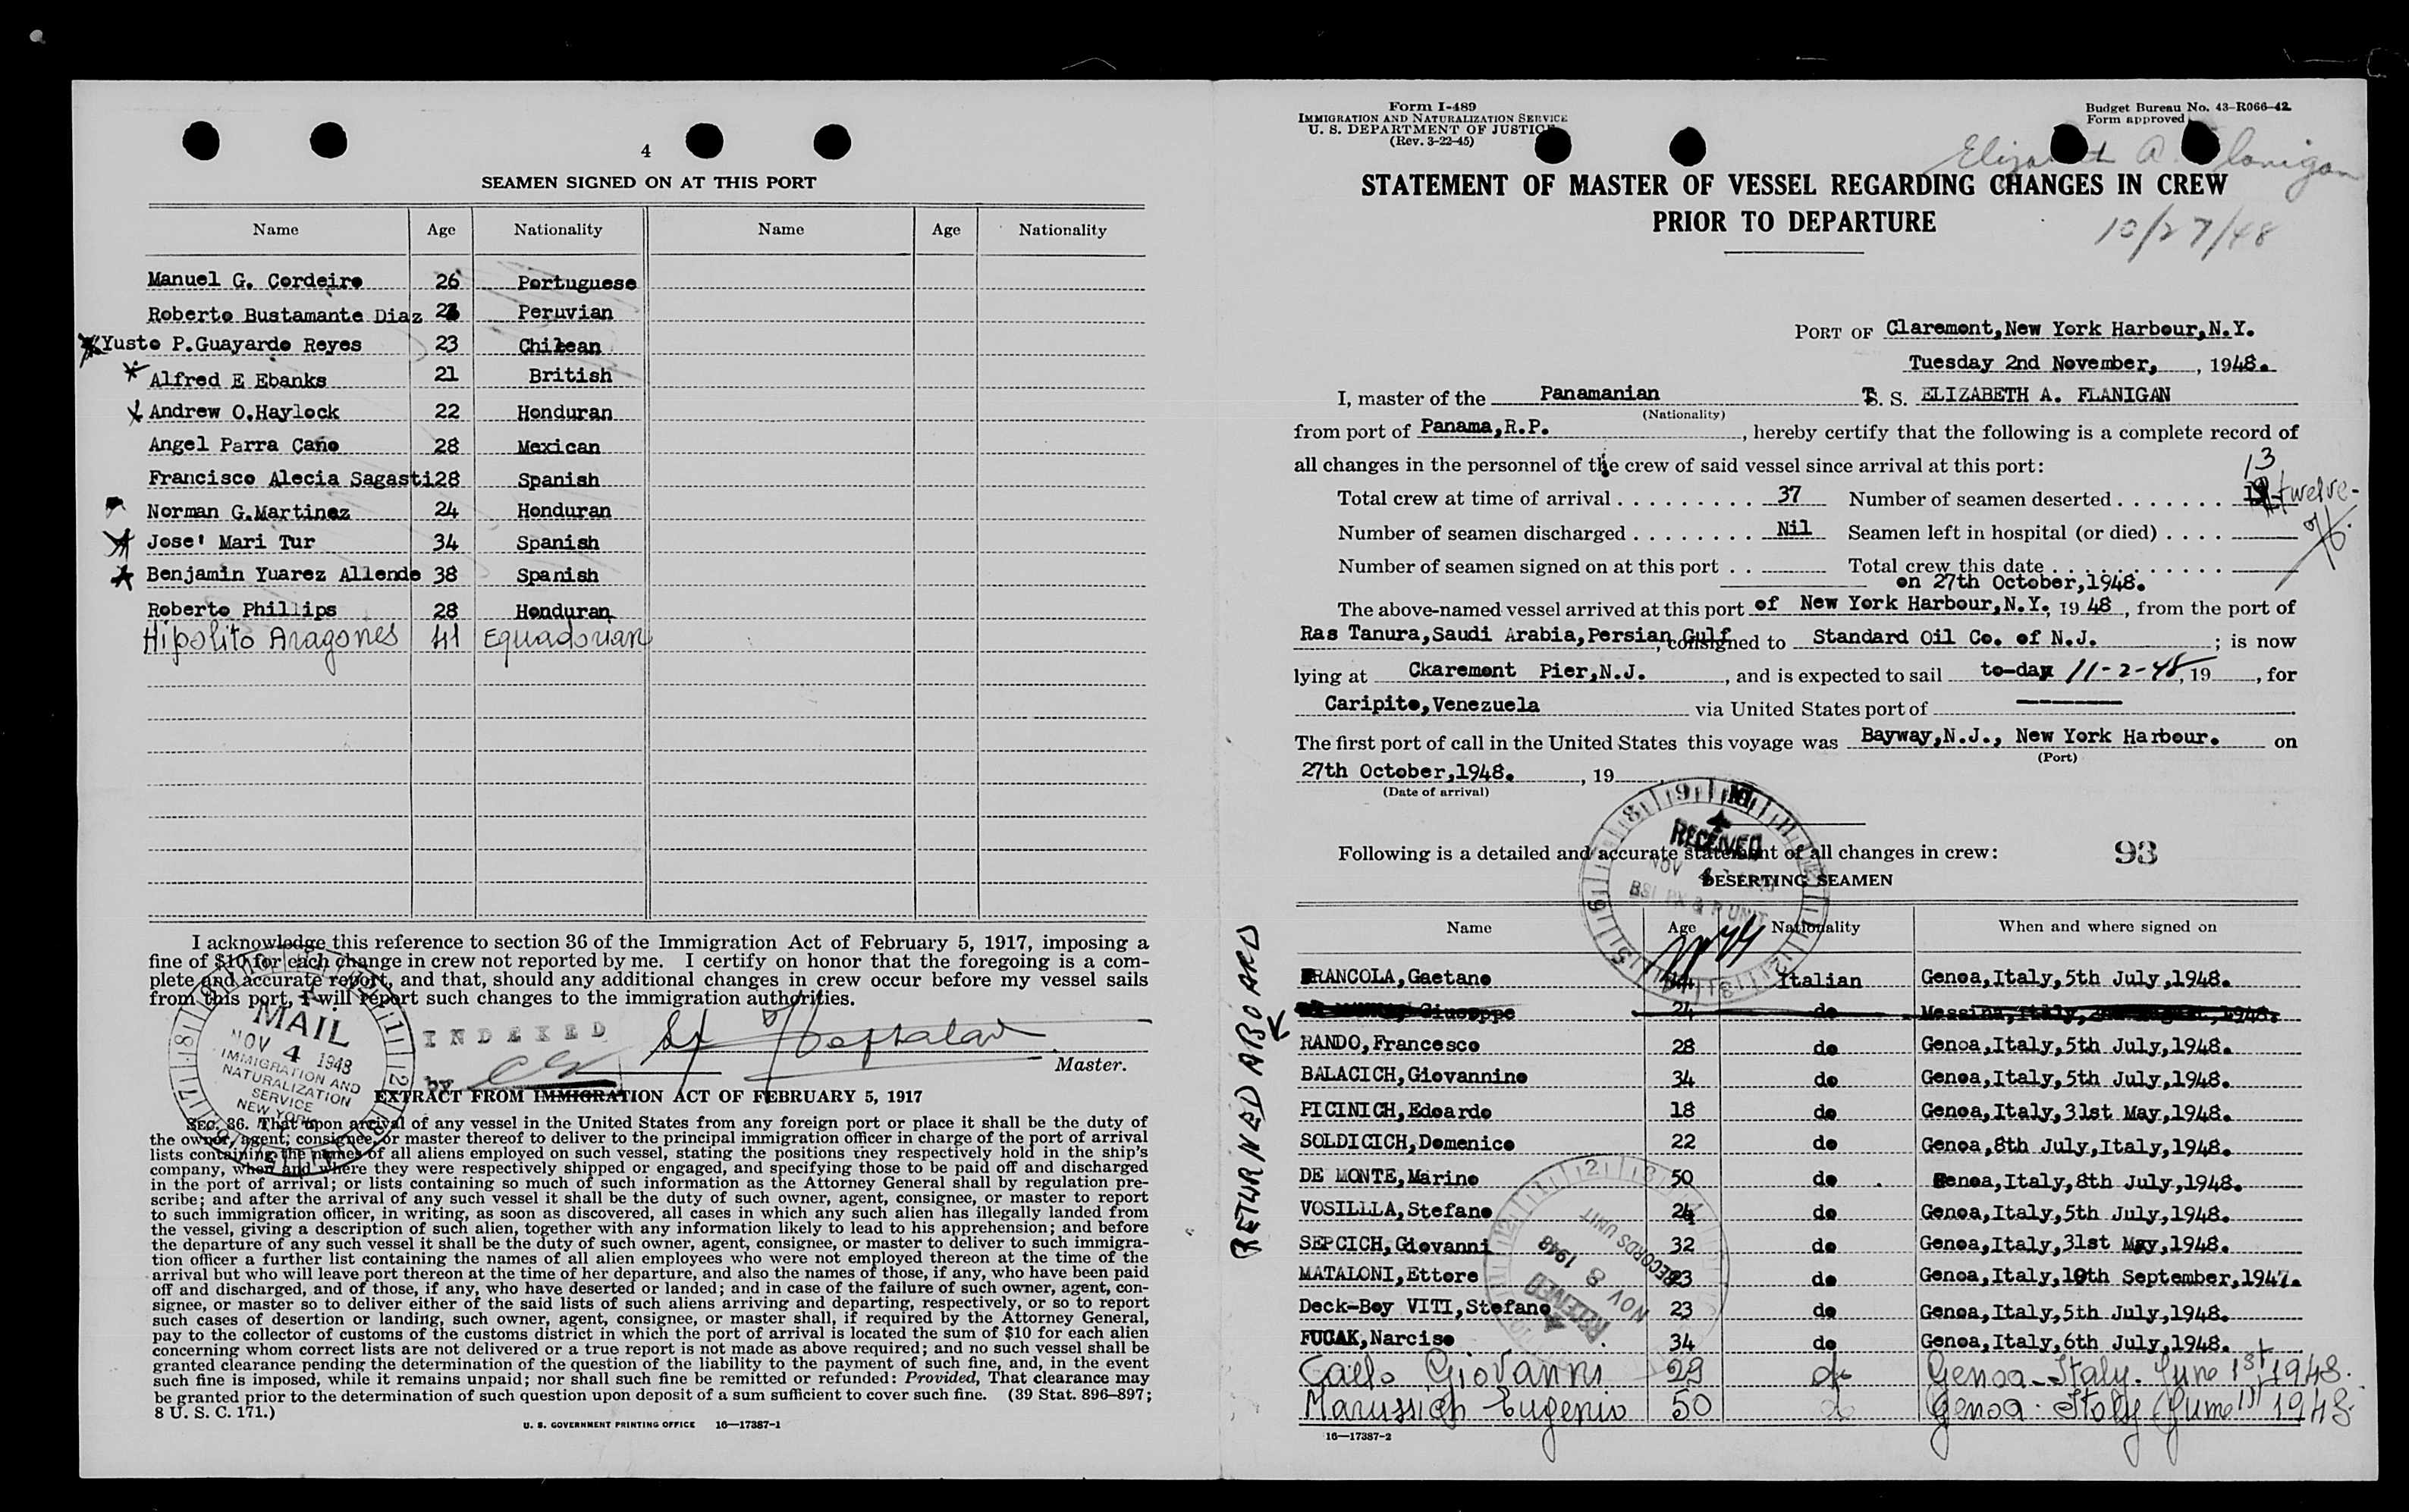 4
SEAMEN SIGNED ON AT THIS PORT
Name Age Nationality Name Age Nationality
Manuel G. Cordeiro 26 Portuguese
Roberto Bustamante Diaz Peruvian
Yusto P.Guayardo Reyes 23 Chilean
Alfred E Ebanks 21 British
Andrew O.Haylock 22 Honduran
Angel Parra Cano 28 Mexican
Francisco Alecia Sagasti 28 Spanish
Norman G.Martinez 24 Honduran
Jose' Mari Tur 34 Spanish
Benjamin Yuarez Allende 38 Spanish
Roberto Phillips 28 Honduran
Hipolito Aragones 41 Equadorian
I acknowledge this reference to section 36 of the Immigration Act of February 5, 1917, imposing a
fine of $10 for each change in crew not reported by me. I certify on honor that the foregoing is a com-
plete and accurate report, and that, should any additional changes in crew occur before my vessel sails
from this port, I will report such changes to the immigration authorities.
MAIL
NOV 4 1948
IMMIGRATION AND
NATURALIZATION
SERVICE
NEW YORK
INDEXED
by
Master.
EXTRACT FROM IMMIGRATION ACT OF FEBRUARY 5, 1917
SEC. 36. That upon arrival of any vessel in the United States from any foreign port or place it shall be the duty of
the owner, agent, consignee, or master thereof to deliver to the principal immigration officer in charge of the port of arrival
lists containing the names of all aliens employed on such vessel, stating the positions they respectively hold in the ship's
company, when and where they were respectively shipped or engaged, and specifying those to be paid off and discharged
in the port of arrival; or lists containing so much of such information as the Attorney General shall by regulation pre-
scribe; and after the arrival of any such vessel it shall be the duty of such owner, agent, consignee, or master to report
to such immigration officer, in writing, as soon as discovered, all cases in which any such alien has illegally landed from
the vessel, giving a description of such alien, together with any information likely to lead to his apprehension; and before
the departure of any such vessel it shall be the duty of such owner, agent, consignee, or master to deliver to such immigra-
tion officer a further list containing the names of all alien employees who were not employed thereon at the time of the
arrival but who will leave port thereon at the time of her departure, and also the names of those, if any, who have been paid
off and discharged, and of those, if any, who have deserted or landed; and in case of the failure of such owner, agent, con-
signee, or master so to deliver either of the said lists of such aliens arriving and departing, respectively, or so to report
such cases of desertion or landing, such owner, agent, consignee, or master shall, if required by the Attorney General,
pay to the collector of customs of the customs district in which the port of arrival is located the sum of $10 for each alien
concerning whom correct lists are not delivered or a true report is not made as above required; and no such vessel shall be
granted clearance pending the determination of the question of the liability to the payment of such fine, and, in the event
such fine is imposed, while it remains unpaid; nor shall such fine be remitted or refunded: Provided, That clearance may
be granted prior to the determination of such question upon deposit of a sum sufficient to cover such fine. (39 Stat. 896-897;
8 U. S. C. 171.)
U. S. GOVERNMENT PRINTING OFFICE 16—17387-1
Form I-489
IMMIGRATION AND NATURALIZATION SERVICE
U. S. DEPARTMENT OF JUSTICE
(Rev. 3-22-45)
Budget Bureau No. 43-R066-42
Form approved
Elizabeth A. Flanigan
STATEMENT OF MASTER OF VESSEL REGARDING CHANGES IN CREW
PRIOR TO DEPARTURE
10/27/48
PORT OF Claremont,New York Harbour,N.Y.
Tuesday 2nd November, , 1948.
I, master of the Panamanian T. S. S. ELIZABETH A. FLANIGAN
(Nationality)
from port of Panama,R.P. , hereby certify that the following is a complete record of
all changes in the personnel of the crew of said vessel since arrival at this port:
13
Total crew at time of arrival 37 Number of seamen deserted twelve-
Number of seamen discharged Nil Seamen left in hospital (or died)
Number of seamen signed on at this port Total crew this date
on 27th October,1948.
The above-named vessel arrived at this port of New York Harbour,N.Y. , 1948 , from the port of
Ras Tanura,Saudi Arabia,Persian Gulf , consigned to Standard Oil Co. of N.J. ; is now
lying at Ckaremont Pier,N.J. , and is expected to sail to-day 11-2-48 , 19 , for
Caripito,Venezuela via United States port of -------
The first port of call in the United States this voyage was Bayway,N.J., New York Harbour. on
(Port)
27th October,1948. , 19
(Date of arrival)
RECEIVED
NOV 4
Following is a detailed and accurate statement of all changes in crew: 93
DESERTING SEAMEN
Name Age Nationality When and where signed on
FRANCOLA,Gaetano Italian Genoa,Italy,5th July,1948.
Giuseppe 24 do Messina,Italy, 1948.
RANDO,Francesco 28 do Genoa,Italy,5th July,1948.
BALACICH,Giovannino 34 do Genoa,Italy,5th July,1948.
PICINICH,Edoardo 18 do Genoa,Italy,31st May,1948.
SOLDICICH,Domenico 22 do Genoa,8th July,Italy,1948.
DE MONTE,Marino 50 do Genoa,Italy,8th July,1948.
VOSILLLA,Stefano 24 do Genoa,Italy,5th July,1948.
SEPCICH,Giovanni 32 do Genoa,Italy,31st May,1948.
MATALONI,Ettore 23 do Genoa,Italy,10th September,1947.
Deck-Boy VITI,Stefano 23 do Genoa,Italy,5th July,1948.
FUCAK,Narciso 34 do Genoa,Italy,6th July,1948.
Caello Giovanni 29 do Genoa-Italy. June 1st 1948.
Marussich Eugenio 50 do Genoa. Italy June 1st 1948.
RETURNED ABOARD
RECEIVED
NOV 8 1948
RECORDS UNIT
16—17387-2